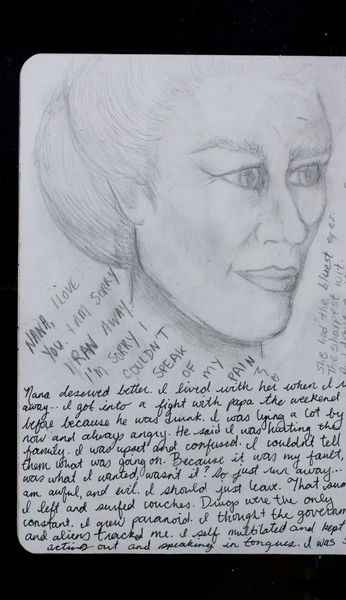 NANA, I LOVE
YOU. I AM SORRY
I RAN AWAY
I'M SORRY I
COULDN'T
SPEAK
OF MY
PAIN
She had the bluest eyes.
The sharpest wit.
Nana deserved better. I lived with her when I
away... I got into a fight with papa the weekend
before because he was drunk. I was lying a lot by
now and always angry. He said I was hurting the
family. I was upset and confused. I couldn't tell
them what was going on. Because it was my fault,
was what I wanted, wasn't it? So just run away...
am awful, and evil. I should just leave. That
I left and surfed couches. Drugs were the only
constant. I grew paranoid. I thought the
and aliens tracked me. I self mutilated and kept
acting out and speaking in tongues. I was